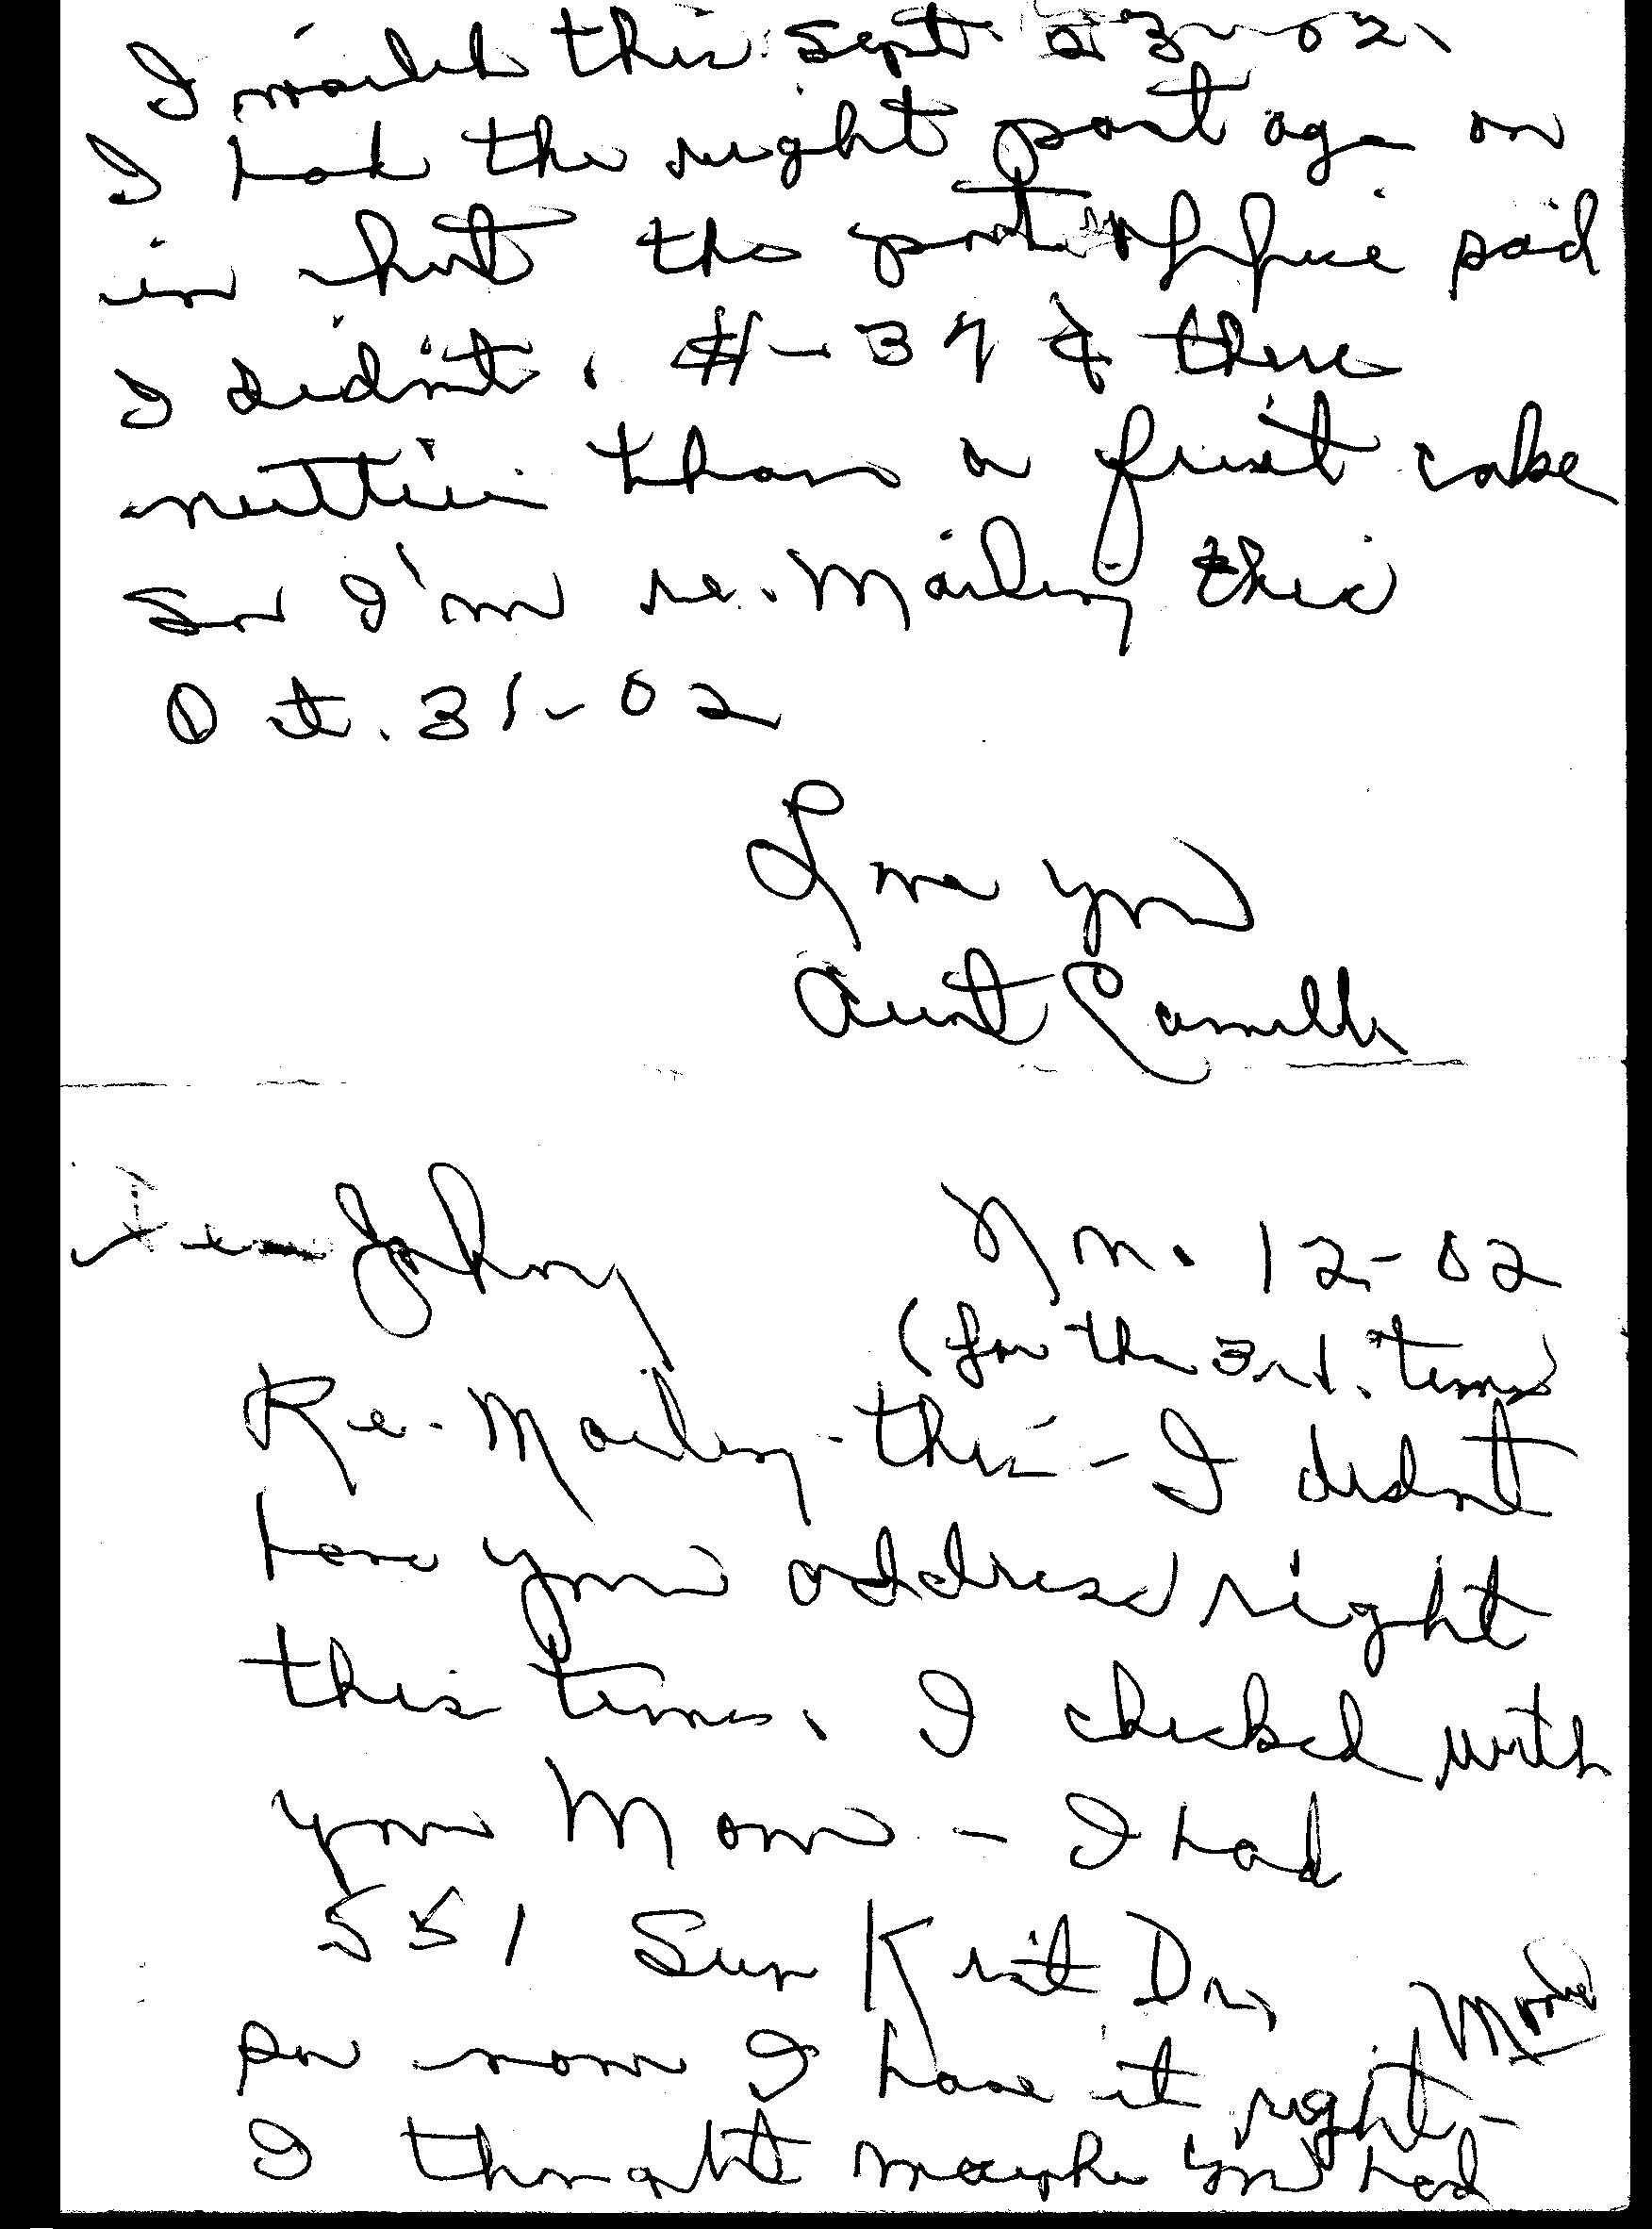 I mailed this Sept 23-02.
I had the right postage on
in but the post office said
I didn't. #-37¢ there
nuttier than a fruit cake
So I'm re-Mailing this
Oct. 31-02
Love you
Aunt Camille
Dear Johnny
Nov. 12-02
(for the 3rd. time)
Re-Mailing this - I didn't
have your address right
this time. I checked with
your Mom - I had
551 Sun Kist Dr,
now I have it right -
I thought maybe you had